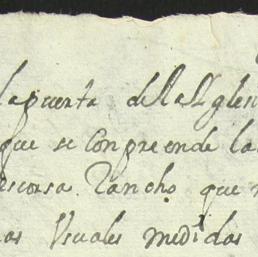 la puerta de la Yglesi
que se conpreende la
Rancho que
as Vsuales medidas